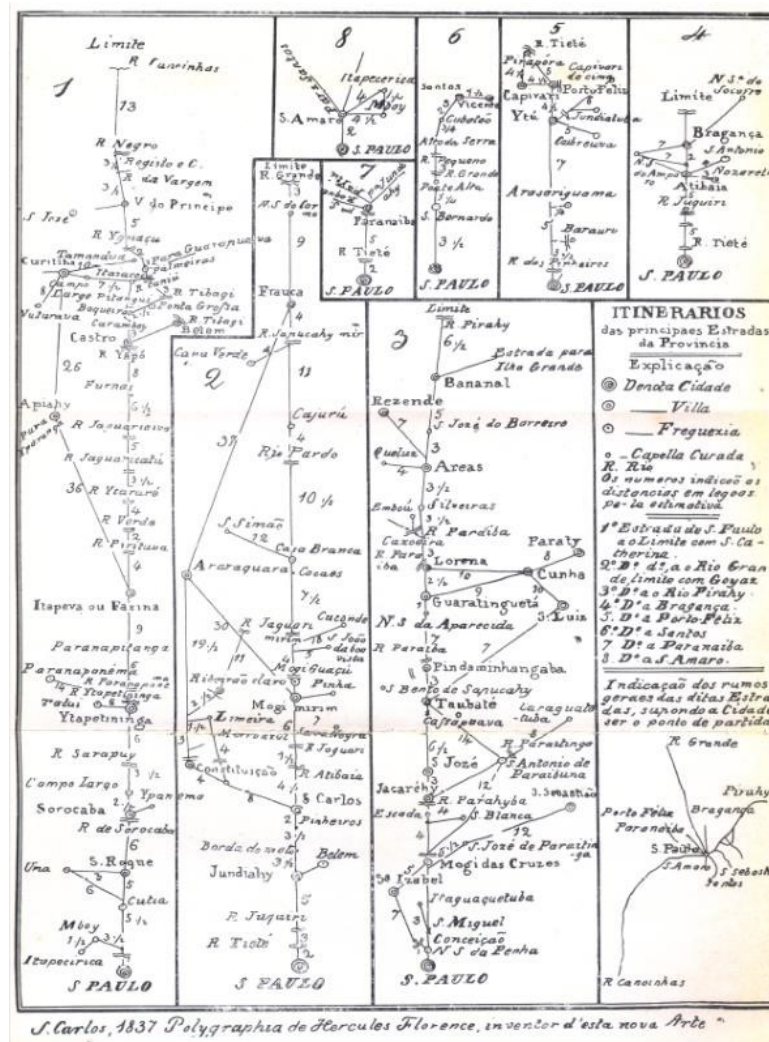 1
Limite
13
R. Negro
Registo e C.
R. da Vargem
3 ½
V. do Principe
S. José
5
R Yguaçú
Tamandua
Palmeiras
Curitiba
10
Campo
7 ½
Largo
Pitangui
R Tibagi
Ponta Grossa
Boqueirão
Carambey
R. Tibagi
Belem
Castro
R. Yapó
8
Furnas
26
6 ½
Apiahy
R Jaguariaiva
5
R Jaguaricatú
5
36
R Ytararé
4
R Verde
2
R. Pirituva
4
Itapeva ou Faxina
9
Paranapitanga
6
Paranapanéma
14
R Ytapetininga
Tatui
6
Ytapetininga
6
R Sarapuy
3 ½
Campo Largo
Ypanema
2 ½
Sorocaba
R de Sorocaba
6
S. Roque
Una
6
5
Cutia
5 ½
Mboy
1 ½
3 ½
Itapecirica
S PAULO
2
Limite
R. Grande
3
N.S. do Carmo
9
Franca
4
R. Sapucahy mir
Cana Verde
11
Cajurú
37
4
Rio Pardo
10 ½
S. Simão
12
Casa Branca
Araraquara
Cocaes
7 ½
Caconde
30
R Jaguari
mirim
18
S. João
da boa
vista
19 ½
11
4
Mogi Guaçú
Ribeirão claro
Pinha
2 ½
Mogi mirim
Limeira
7
1 ½
Morro azul
R Jaguari
3
4
Constituição
R. Atibaia
4
4 ½
8
S Carlos
2
Pinheiros
3 ½
Borda do mato
3 ½
Belem
Jundiahy
5
R Juquiri
3
R Tieté
2
S PAULO
8
Para Santos
Itapecerica
4
Mboy
S. Amaro
4 ½
2
S. PAULO
7
Paranaiba
5
R Tieté
2
S. PAULO
6
Santos
1 ½
S. Vicente
2
Cubatão
¾
Alto da Serra
R Pequeno
R. Grande
Ponte Alta
S. Bernardo
3 ½
S. PAULO
5
R. Tieté
Pirapóra
Capivari
de cima
4 ½
5
Porto Feliz
Capivari
4 ½
Ytú
6
Jundiatuba
5
Cabreuva
7
Arasariguama
5
Barauri
3 ½
R. dos Pinheiros
S. PAULO
4
N S.ª do
Socorro
Limite
7
Bragança
7
2
S. Antonio
N. S
do Ampa
ro
4
Nazareth
Atibaia
5
R. Juquiri
5
R. Tieté
S. PAULO
3
Limite
R. Pirahy
6 ½
Estrada para
Ilha Grande
Bananal
Rezende
5
7
S. José do Barreiro
Queluz
3
4
Areas
3 ½
Silveiras
Embaú
3 ½
R Paraiba
Caxoeira
3
Paraty
R. Para
iba
Lorena
8
10
Cunha
2 ½
9
10
Guaratinguetá
1
S. Luiz
N.S da Aparecida
7
R. Paraiba
7
Pindaminhangaba
3
S Bento de Sapucahy
Taubaté
Caraguata
tuba
Cassapava
14
8
R Paraitinga
6 ½
S. José
S. Antonio de
Paraibuna
3
12
Jacarehy
R. Parahyba
S. Sebastião
Escada
4
S. Blanca
12
S. José de Paraitin
ga
Mogi das Cruzes
Sª Izabel
5
Itaquaquetuba
7
3
S. Miguel
Conceição
N S da Penha
S. PAULO
ITINERARIOS
das principaes Estradas
da Provincia
Explicação
Denota Cidade
— Villa
— Freguezia
– Capella Curada
R. Rio
Os numeros indicão as
distancias em legoas
pela estimativa
1ª Estrada de S. Paulo
ao Limite com S. Ca-
therina.
2ª Dª dª, ao Rio Gran
de, limite com Goyaz
3ª Dª ao Rio Pirahy
4ª Dª a Bragança.
5. Dª a Porto Feliz
6ª Dª a Santos
7 Dª a Paranaiba
8. Dª a S. Amaro.
Indicação dos rumos
geraes das ditas Estra
das, supondo a Cidade
ser o ponto de partida
R. Grande
Pirahy
Bragança
Porto Feliz
Paranaiba
S. Paulo
S. Amaro
Santos
S Sebast
R Canoinhas
S. Carlos, 1837 Polygraphia de Hercules Florence, inventor d'esta nova Arte